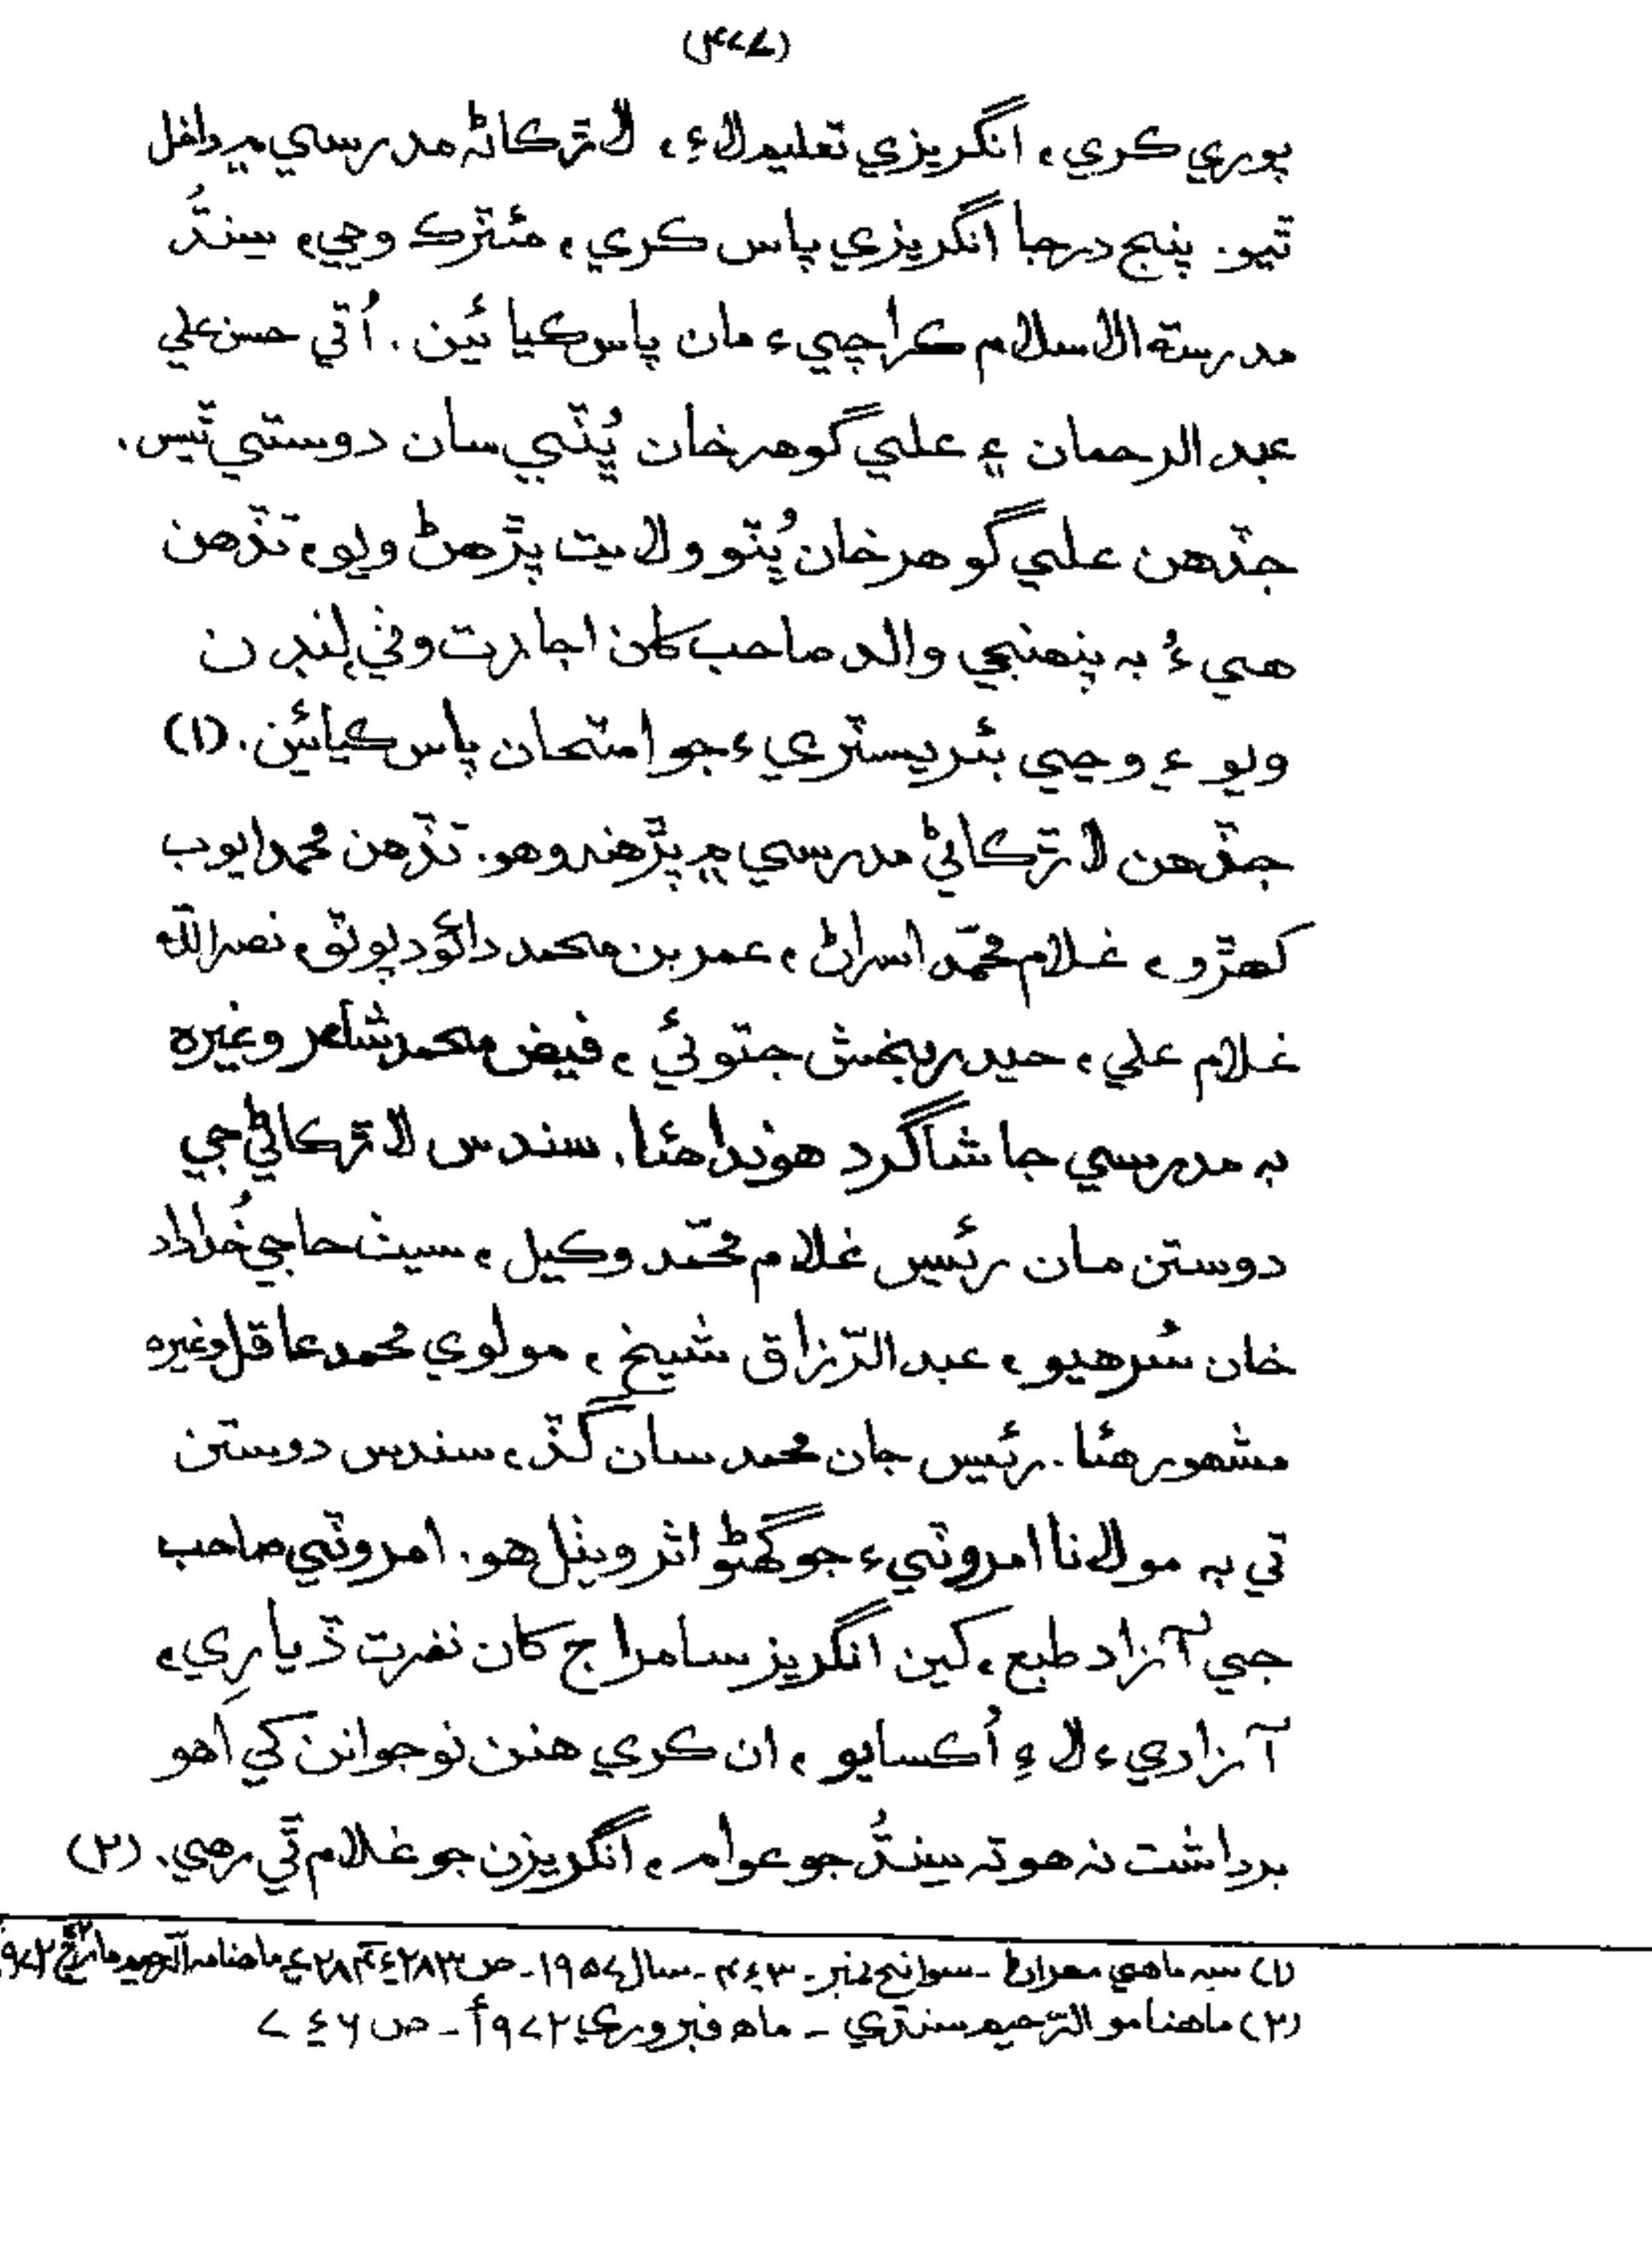 (٤٧٧)
پوري ڪري، انگريزي تعليم لاءِ، لاڙڪاڻه مدرسي ۾ داخل
ٿيو. پنج درجا انگريزي پاس ڪري، مئٽرڪ وڃي، سنڌ
مدرسة الاسلام ڪراچيءَ مان پاس ڪيائين. اُتي حسن علي
عبدالرحمان ۽ علي گوهر خان ڀُٽي سان دوستي ٿيس.
جڏهن علي گوهر خان ڀُٽو ولايت پڙهڻ ويو، تڏهن
هيءُ به پنهنجي والد صاحب کان اجازت وٺي لنڊن
ويو ۽ وڃي بئريسٽريءَ جو امتحان پاس ڪيائين. (١)
جڏهن لاڙڪاڻي مدرسي ۾ پڙهندو هو. تڏهن محمد ايوب
کهڙو، غلام محمّد اسراڻ، عمر بن محمد دائودپوٽو، نصرالله
غلام علي، حيدر بخش جتوئي، فيض محمد شاعر وغيره
به مدرسي جا شاگرد هوندا هئا. سندس لاڙڪاڻي جي
دوستن مان رئيس غلام محمّد وڪيل، سيٺ حاجي خُداداد
خان سُرهيو، عبدالرّزاق شيخ، مولوي محمد عاقل وغيره
مشهور هئا. رئيس جان محمد سان گڏ، سندس دوستن
تي به مولانا امروٽيءَ جو گهڻو اثر ويٺل هو. امروٽي صاحب
جي آزاد طبع، کين انگريز سامراج کان نفرت ڏياري،
آزاديءَ لاءِ اُڪسايو، ان ڪري هنن نوجوانن کي اهو
برداشت نه هو ته سنڌُ جو عوام، انگريزن جو غلام ٿي رهي. (٢)
(١) سه ماهي مهراڻ - سوانح نمبر - ٣ ۽ ٤ - سال ١٩٥٧ - ص ٢٨٣ ۽ ٢٨٤ ۽ ماهنامه الرحيم مارچ
(٢) ماهنامو الرّحيم سنڌي - ماھ فيبروري ١٩٧٢ - ص ٦ ۽ ٧